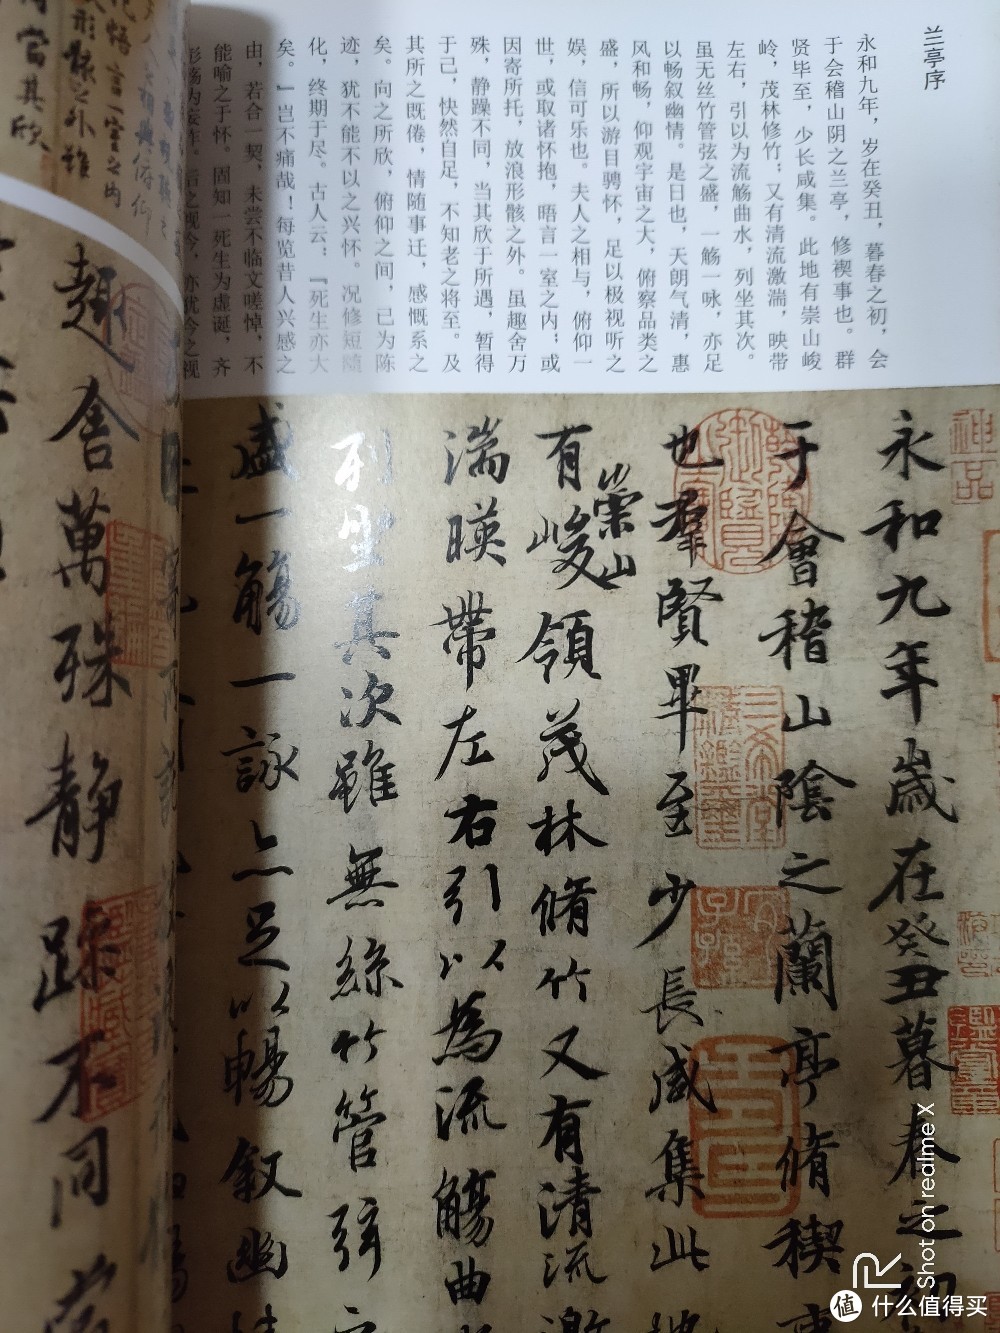 兰亭序
永和九年，岁在癸丑，暮春之初，会
于会稽山阴之兰亭，修禊事也。群
贤毕至，少长咸集。此地有崇山峻
岭，茂林修竹；又有清流激湍，映带
左右，引以为流觞曲水，列坐其次。
虽无丝竹管弦之盛，一觞一咏，亦足
以畅叙幽情。是日也，天朗气清，惠
风和畅，仰观宇宙之大，俯察品类之
盛，所以游目骋怀，足以极视听之
娱，信可乐也。夫人之相与，俯仰一
世，或取诸怀抱，晤言一室之内；或
因寄所托，放浪形骸之外。虽趣舍万
殊，静躁不同，当其欣于所遇，暂得
于己，快然自足，不知老之将至。及
其所之既倦，情随事迁，感慨系之
矣。向之所欣，俯仰之间，已为陈
迹，犹不能不以之兴怀。况修短隨
化，终期于尽。古人云：『死生亦大
矣。』岂不痛哉！每览昔人兴感之
由，若合一契，未尝不临文嗟悼，不
能喻之于怀。固知一死生为虚诞，齐
彭殇为妄作。后之视今，亦犹今之视
永和九年歲在癸丑暮春之初
于會稽山陰之蘭亭脩稧事
也羣賢畢至少長咸集此地
有崇山峻領茂林脩竹又有清流激
湍暎帶左右引以為流觴曲水
列坐其次雖無絲竹管弦之
盛一觴一詠亦足以暢敘幽情
趣舍萬殊静躁不同當
言一室之内
形骸之外雖
當其欣
神品
Shot on realme X
值 什么值得买